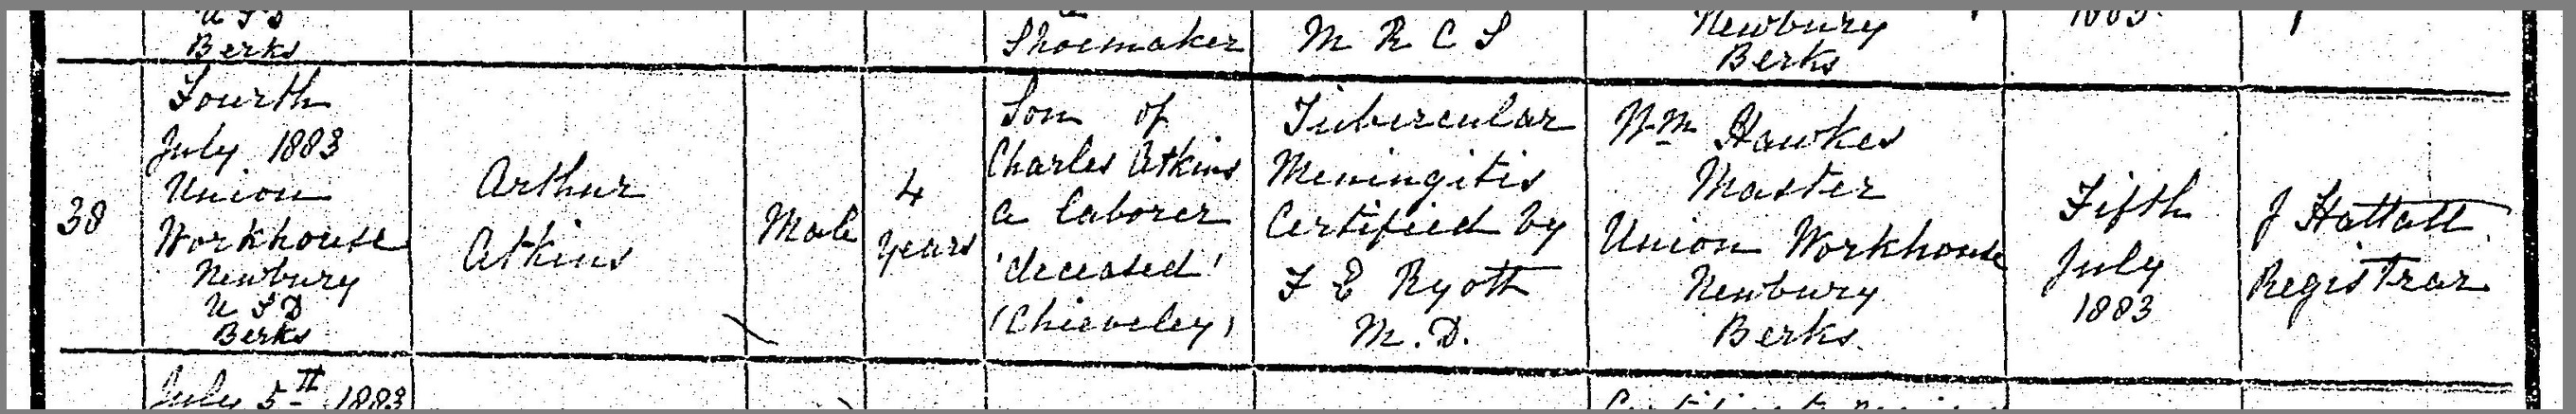 U S D
Berks
Shoemaker
M R C S
Newbury
Berks
1883.
38
Fourth
July 1883
Union
Workhouse
Newbury
U S D
Berks
Arthur
Atkins
Male
4
years
Son of
Charles Atkins
a laborer
'deceased'
(Chieveley)
Tubercular
Meningitis
Certified by
F E Ryott
M.D.
Wm Hawkes
Master
Union Workhouse
Newbury
Berks.
Fifth
July
1883
J Hattatt
Registrar
July 5th 1883